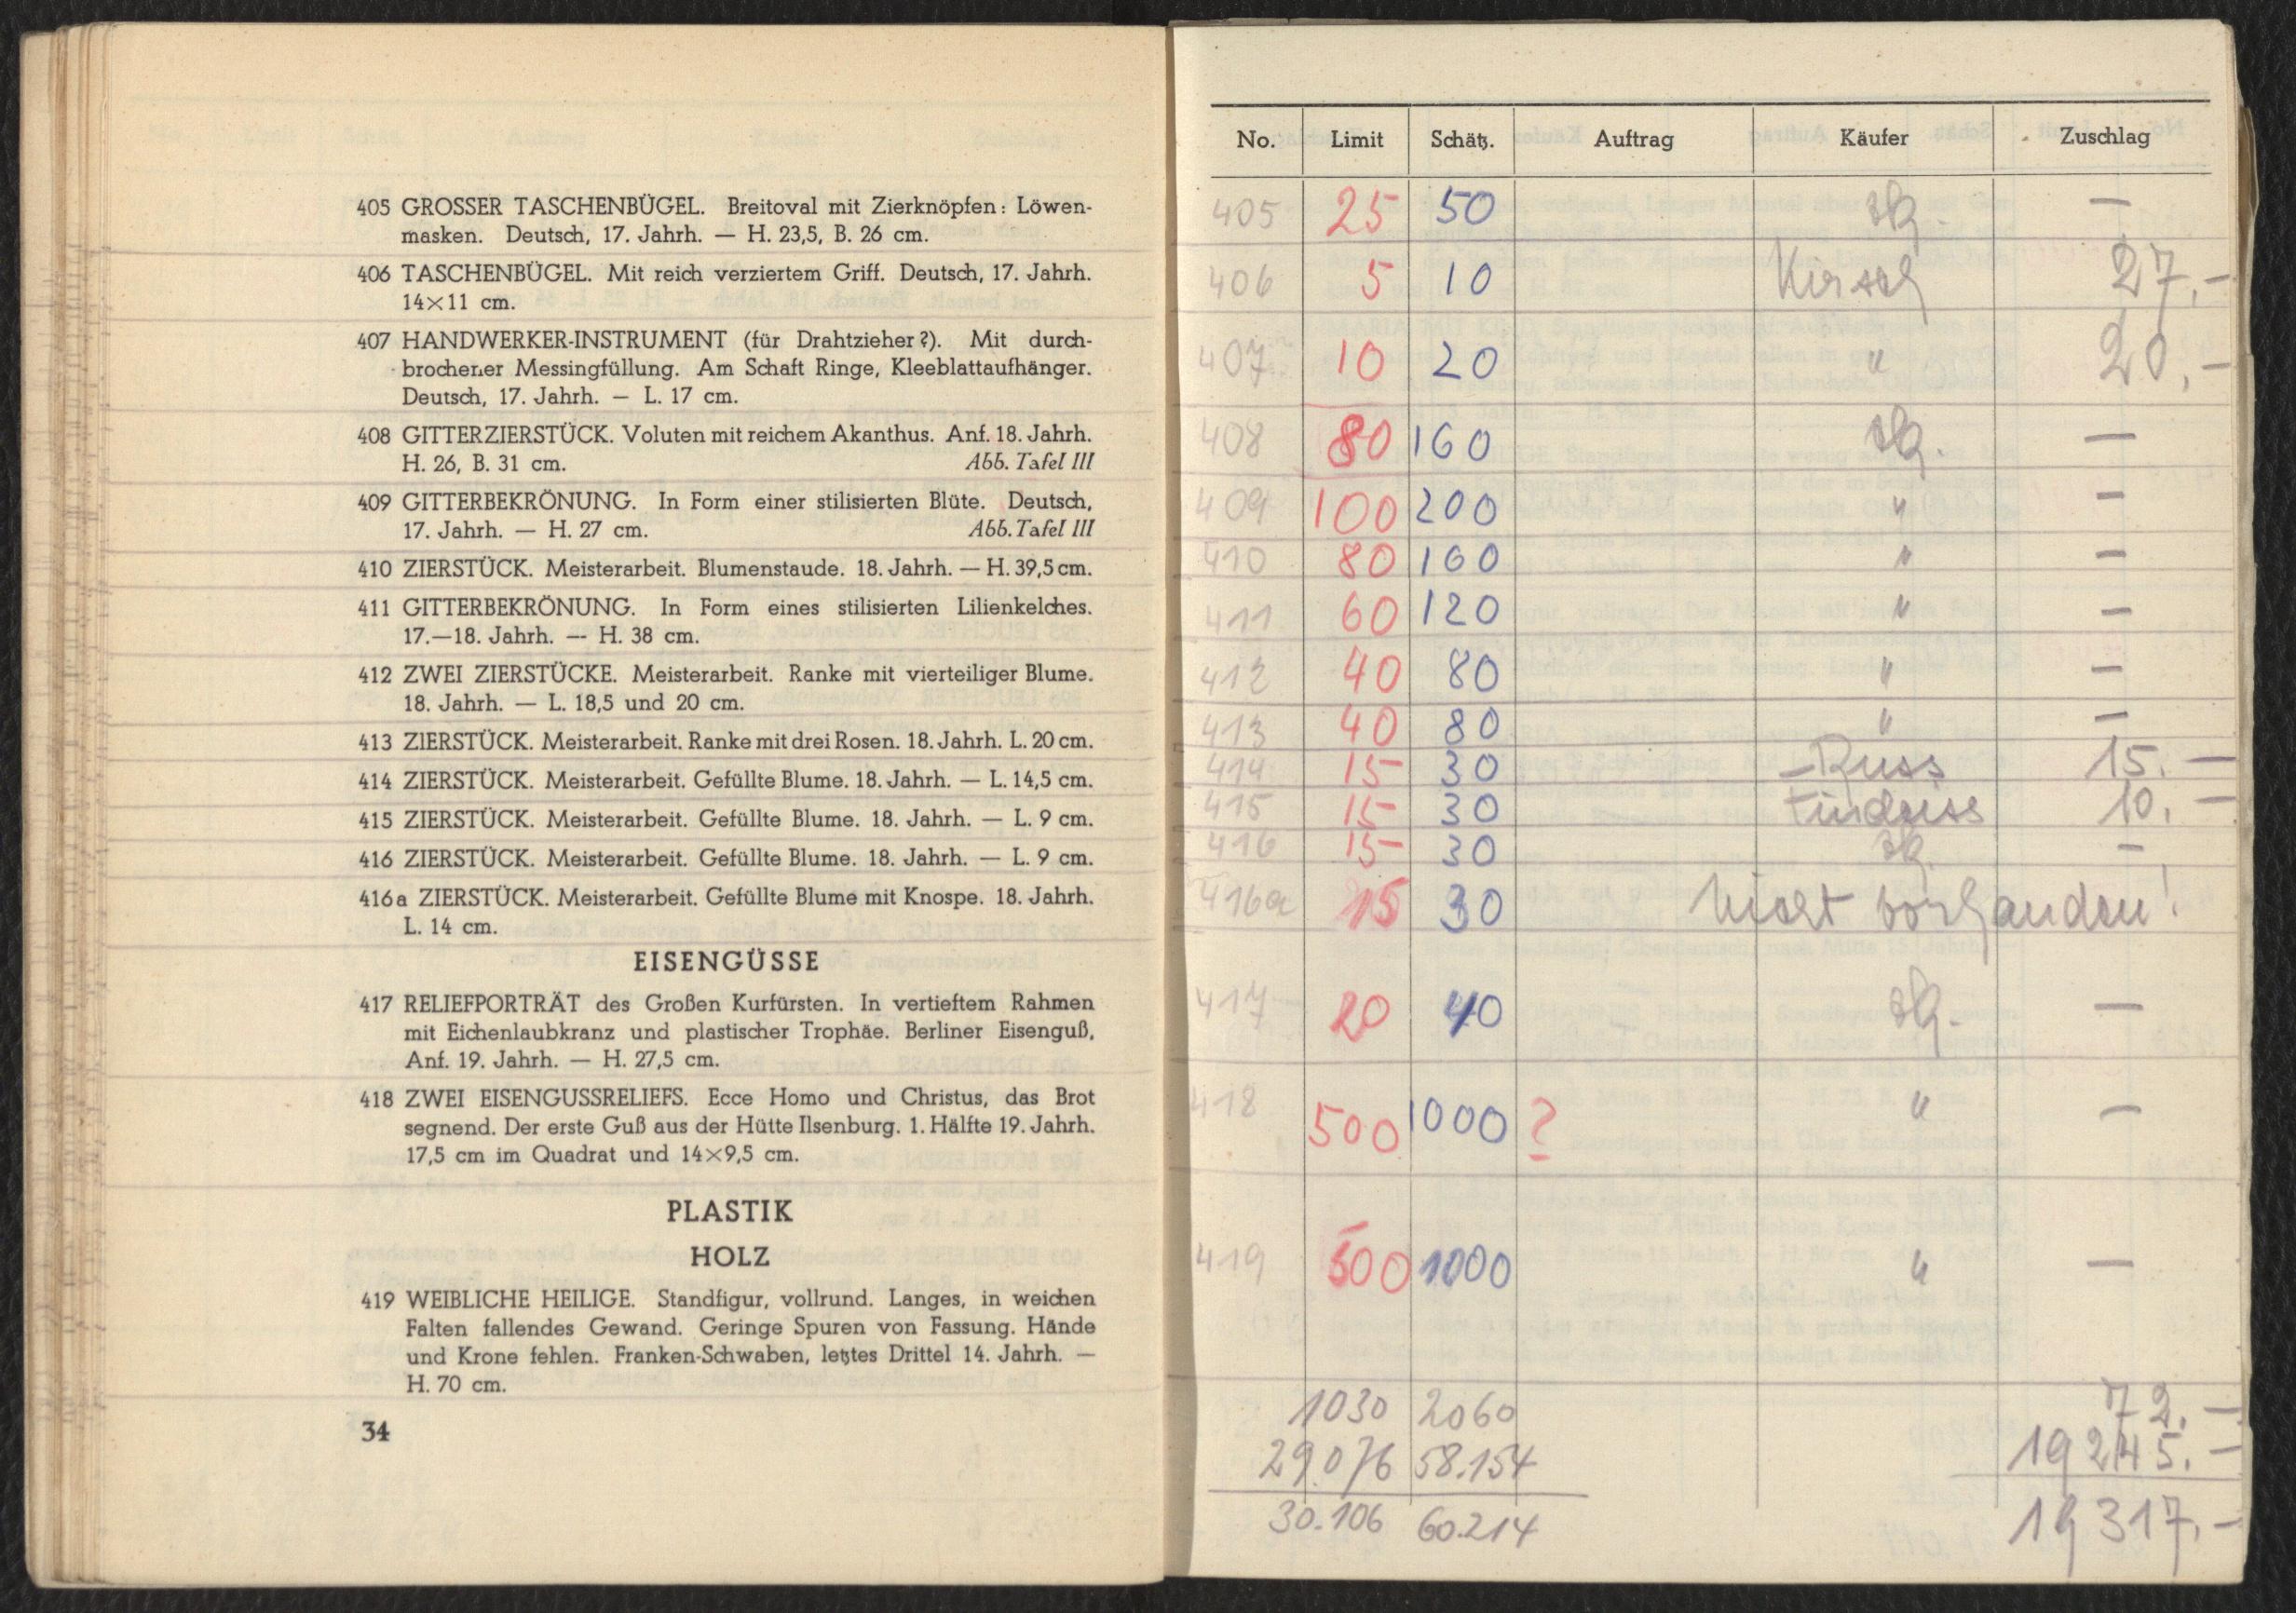 405 GROSSER TASCHENBÜGEL. Breitoval mit Zierknöpfen: Löwen-
masken. Deutsch, 17. Jahrh. — H. 23,5, B. 26 cm.
406 TASCHENBÜGEL. Mit reich verziertem Griff. Deutsch, 17. Jahrh.
14×11 cm.
407 HANDWERKER-INSTRUMENT (für Drahtzieher?). Mit durch-
brochener Messingfüllung. Am Schaft Ringe, Kleeblattaufhänger.
Deutsch, 17. Jahrh. — L. 17 cm.
408 GITTERZIERSTÜCK. Voluten mit reichem Akanthus. Anf. 18. Jahrh.
H. 26, B. 31 cm. Abb. Tafel III
409 GITTERBEKRÖNUNG. In Form einer stilisierten Blüte. Deutsch,
17. Jahrh. — H. 27 cm. Abb. Tafel III
410 ZIERSTÜCK. Meisterarbeit. Blumenstaude. 18. Jahrh. — H. 39,5 cm.
411 GITTERBEKRÖNUNG. In Form eines stilisierten Lilienkelches.
17.—18. Jahrh. — H. 38 cm.
412 ZWEI ZIERSTÜCKE. Meisterarbeit. Ranke mit vierteiliger Blume.
18. Jahrh. — L. 18,5 und 20 cm.
413 ZIERSTÜCK. Meisterarbeit. Ranke mit drei Rosen. 18. Jahrh. L. 20 cm.
414 ZIERSTÜCK. Meisterarbeit. Gefüllte Blume. 18. Jahrh. — L. 14,5 cm.
415 ZIERSTÜCK. Meisterarbeit. Gefüllte Blume. 18. Jahrh. — L. 9 cm.
416 ZIERSTÜCK. Meisterarbeit. Gefüllte Blume. 18. Jahrh. — L. 9 cm.
416a ZIERSTÜCK. Meisterarbeit. Gefüllte Blume mit Knospe. 18. Jahrh.
L. 14 cm.
EISENGÜSSE
417 RELIEFPORTRÄT des Großen Kurfürsten. In vertieftem Rahmen
mit Eichenlaubkranz und plastischer Trophäe. Berliner Eisenguß,
Anf. 19. Jahrh. — H. 27,5 cm.
418 ZWEI EISENGUSSRELIEFS. Ecce Homo und Christus, das Brot
segnend. Der erste Guß aus der Hütte Ilsenburg. 1. Hälfte 19. Jahrh.
17,5 cm im Quadrat und 14×9,5 cm.
PLASTIK
HOLZ
419 WEIBLICHE HEILIGE. Standfigur, vollrund. Langes, in weichen
Falten fallendes Gewand. Geringe Spuren von Fassung. Hände
und Krone fehlen. Franken-Schwaben, letztes Drittel 14. Jahrh. —
H. 70 cm.
34
No. Limit Schätz. Auftrag Käufer Zuschlag
405 25 50 —
406 5 10 Kirsch 27.—
407 10 20 " 20.—
408 80 160 —
409 100 200 " —
410 80 160 " —
411 60 120 " —
412 40 80 " —
413 40 80 " —
414 15 30 Russ 15.—
415 15 30 10.—
416 15 30 —
416a 15 30 nicht vorhanden!
417 20 40 —
418 500 1000 ? " —
419 500 1000 " —
1030 2060 72.—
29.076 58.154 19245.—
30.106 60.214 19317.—